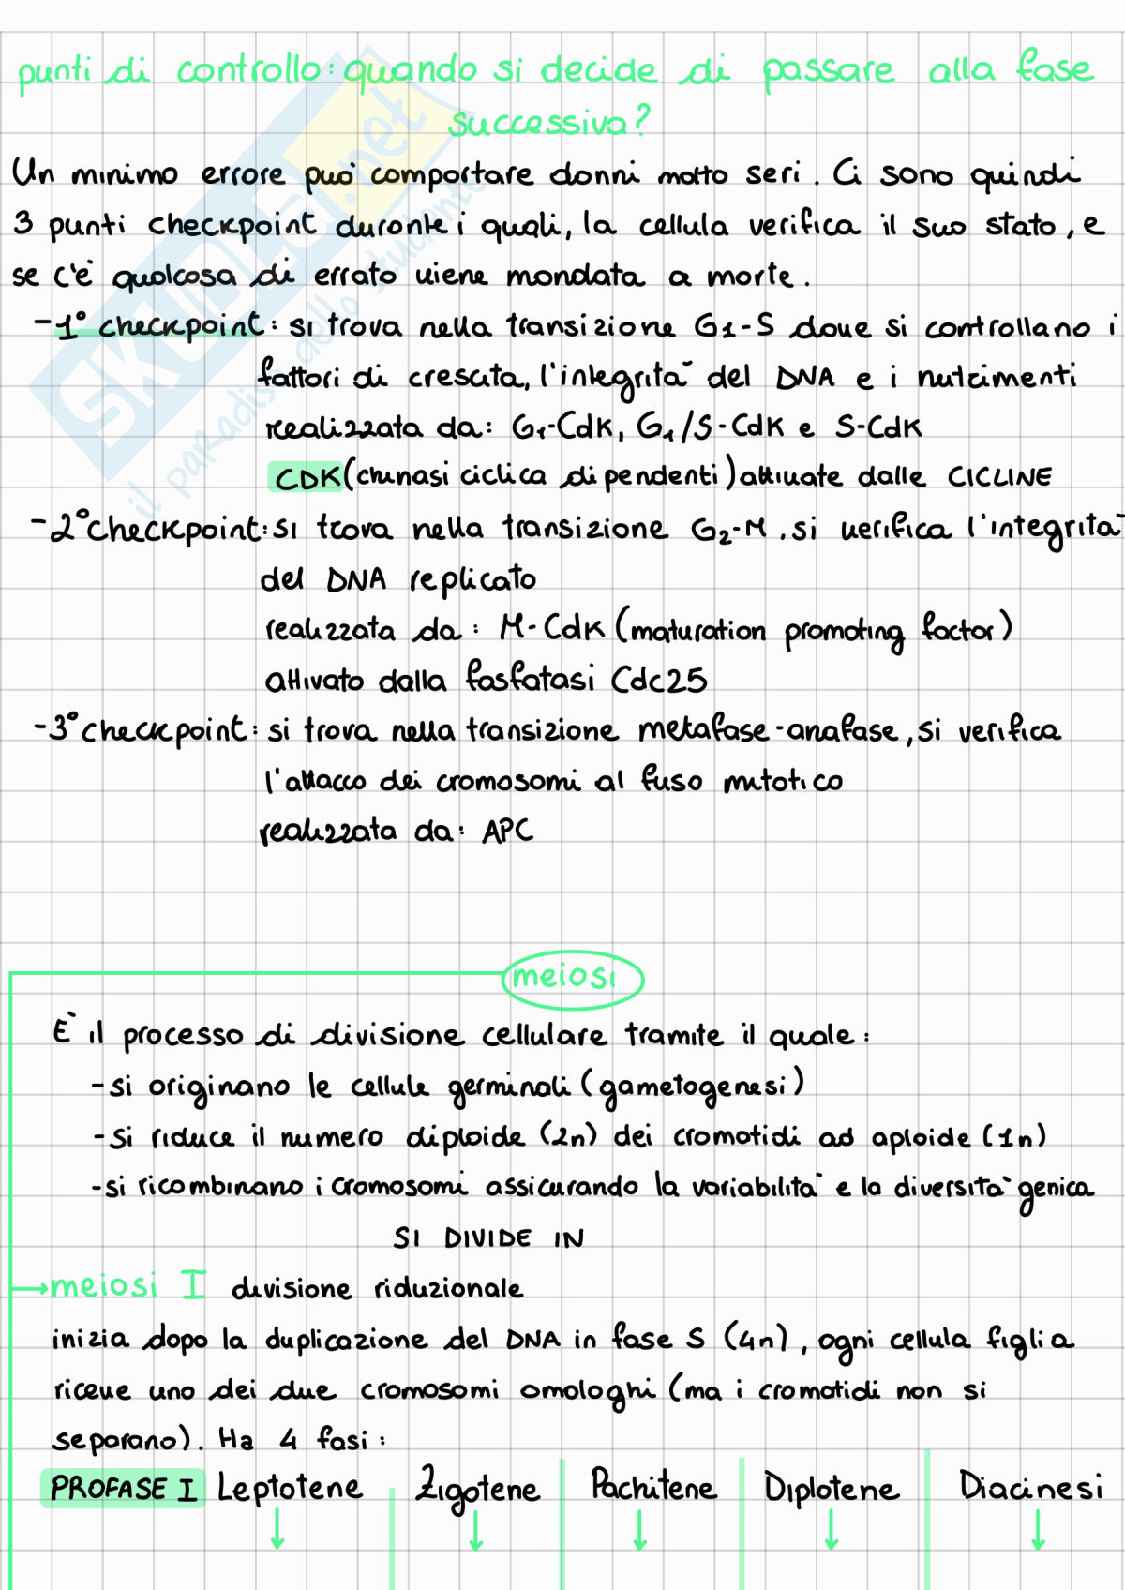 punti di controllo: quando si decide di passare alla fase
successiva?
Un minimo errore può comportare danni molto seri. Ci sono quindi
3 punti checkpoint durante i quali, la cellula verifica il suo stato, e
se c'è qualcosa di errato viene mandata a morte.
-1° checkpoint: si trova nella transizione G1-S dove si controllano i
fattori di crescita, l'integrità del DNA e i nutrimenti
realizzata da: G1-Cdk, G1/S-Cdk e S-Cdk
CDK (chinasi ciclica dipendenti) attivate dalle CICLINE
-2° checkpoint: si trova nella transizione G2-M, si verifica l'integrità
del DNA replicato
realizzata da: M-Cdk (maturation promoting factor)
attivato dalla fosfatasi Cdc25
-3° checkpoint: si trova nella transizione metafase-anafase, si verifica
l'attacco dei cromosomi al fuso mitotico
realizzata da: APC
meiosi
È il processo di divisione cellulare tramite il quale:
-si originano le cellule germinali (gametogenesi)
-si riduce il numero diploide (2n) dei cromatidi ad aploide (1n)
-si ricombinano i cromosomi assicurando la variabilità e la diversità genica
SI DIVIDE IN
→meiosi I divisione riduzionale
inizia dopo la duplicazione del DNA in fase S (4n), ogni cellula figlia
riceve uno dei due cromosomi omologhi (ma i cromatidi non si
separano). Ha 4 fasi:
PROFASE I Leptotene Zigotene Pachitene Diplotene Diacinesi
↓ ↓ ↓ ↓ ↓
SKUOLA.net
il paradiso dello studente